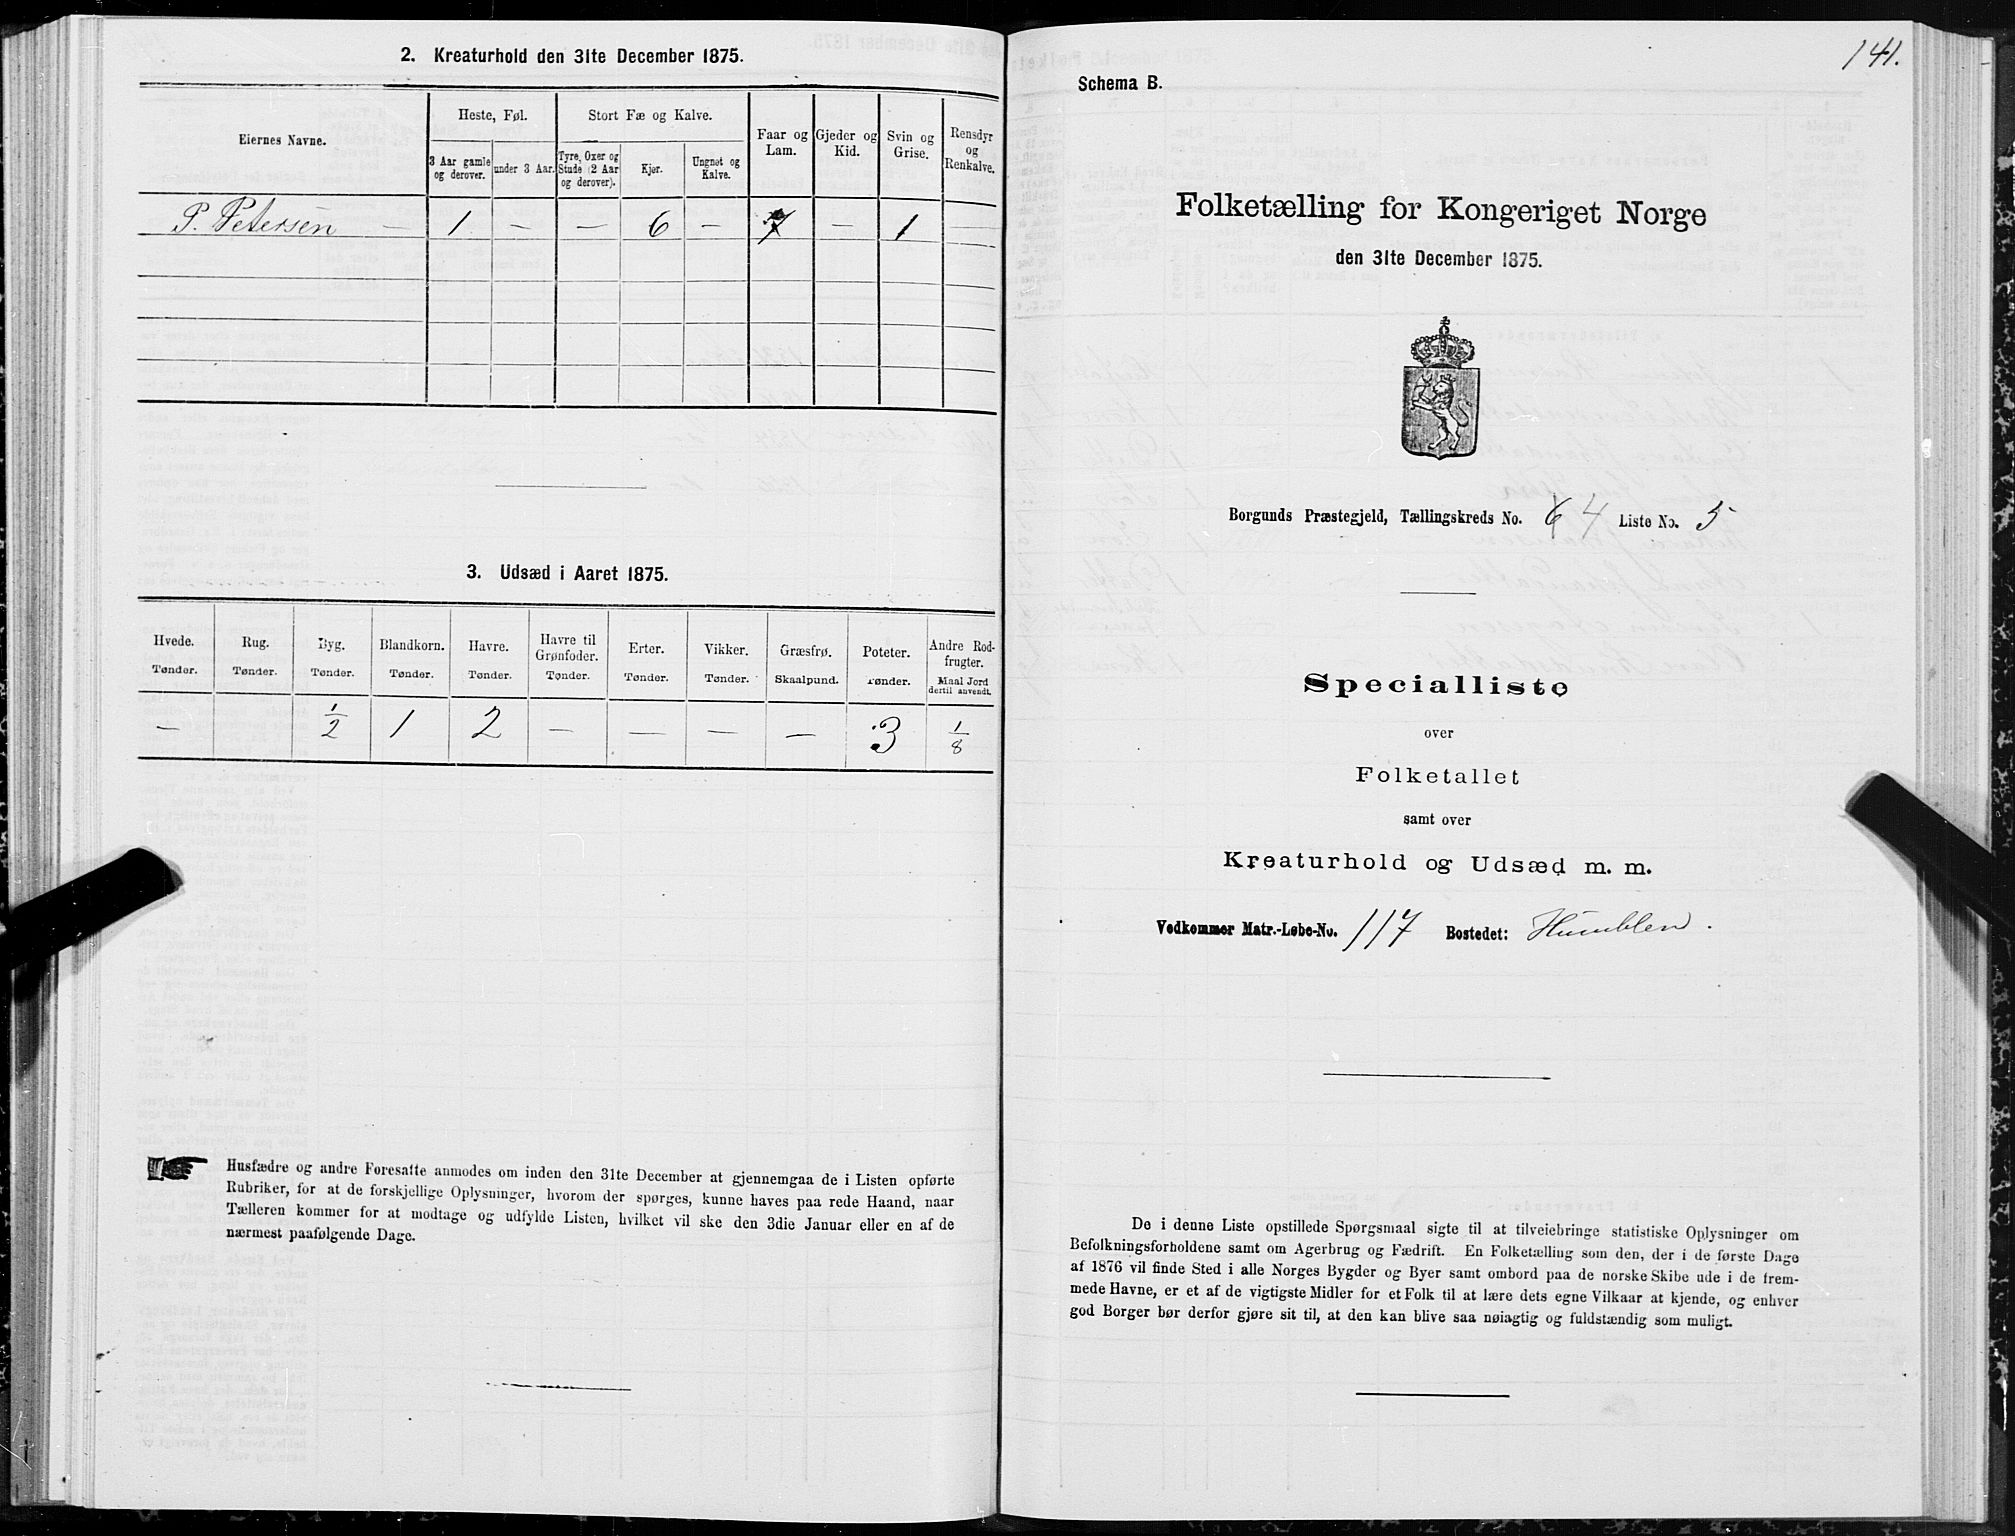 2. Kreaturhold den 31te December 1875.
Eiernes Navne.
Heste, Føl.
Stort Fæ og Kalve.
Faar og Lam.
Gjeder og Kid.
Svin og Grise.
Rensdyr og Renkalve.
3 Aar gamle og derover.
under 3 Aar.
Tyre, Oxer og Stude (2 Aar og derover).
Kjør.
Ungnøt og Kalve.
P. Petersen — 1 — — 6 — — 1
3. Udsæd i Aaret 1875.
Hvede. Rug. Byg. Blandkorn. Havre. Havre til Grønfoder. Erter. Vikker. Græsfrø. Poteter. Andre Rodfrugter.
Tønder. Tønder. Tønder. Tønder. Tønder. Tønder. Tønder. Tønder. Skaalpund. Tønder. Maal Jord dertil anvendt.
— 1/2 1 2 — — — — 3 1/8
Husfædre og andre Foresatte anmodes om inden den 31te December at gjennemgaa de i Listen opførte
Rubriker, for at de forskjellige Oplysninger, hvorom der spørges, kunne haves paa rede Haand, naar
Tælleren kommer for at modtage og udfylde Listen, hvilket vil ske den 3die Januar eller en af de
nærmest paafølgende Dage.
141.
Schema B.
Folketælling for Kongeriget Norge
den 31te December 1875.
Borgunds Præstegjeld, Tællingskreds No. 6 4 Liste No. 5
Specialliste
over
Folketallet
samt over
Kreaturhold og Udsæd m. m.
Vedkommer Matr.-Løbe-No. 117 Bostedet: Humblen.
De i denne Liste opstillede Spørgsmaal sigte til at tilveiebringe statistiske Oplysninger om
Befolkningsforholdene samt om Agerbrug og Fædrift. En Folketælling som den, der i de første Dage
af 1876 vil finde Sted i alle Norges Bygder og Byer samt ombord paa de norske Skibe ude i de frem-
mede Havne, er et af de vigtigste Midler for et Folk til at lære dets egne Vilkaar at kjende, og enhver
god Borger bør derfor gjøre sit til, at den kan blive saa nøiagtig og fuldstændig som muligt.